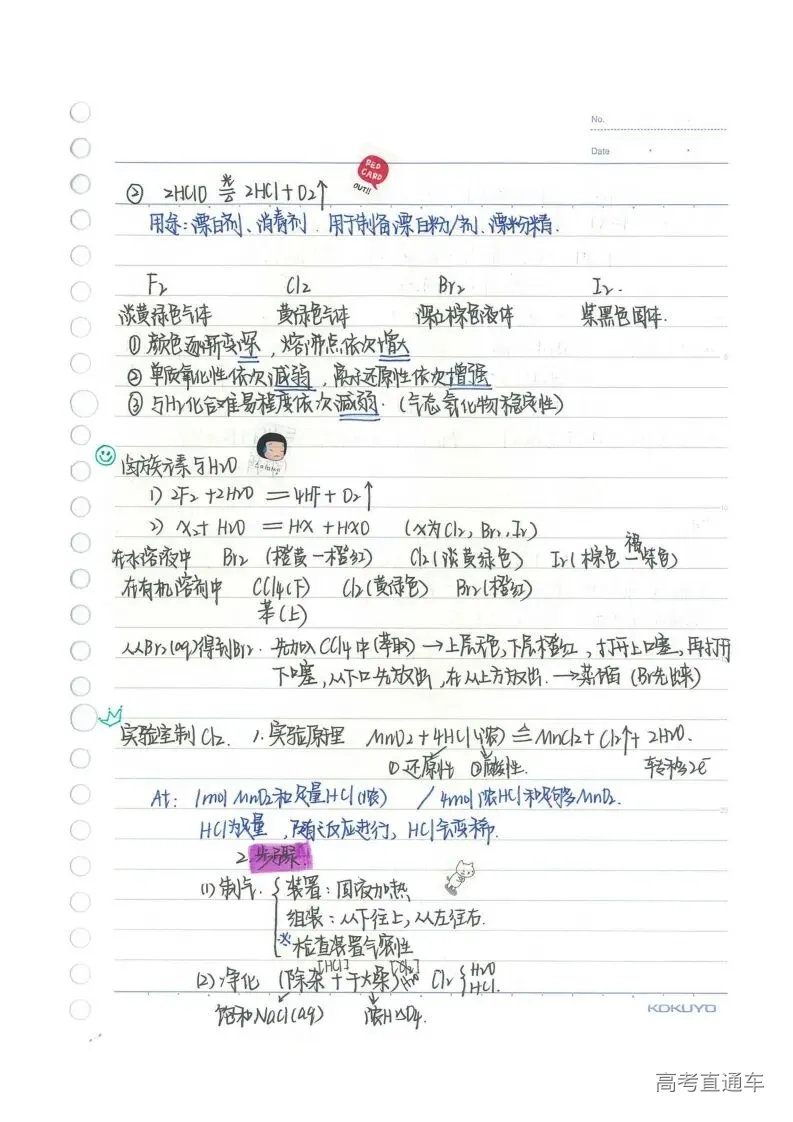 No.
Date
RED CARD OUT!!
② 2HClO 光= 2HCl+O2↑
用途:漂白剂、消毒剂. 用于制备漂白粉/剂、漂粉精.
F2 Cl2 Br2 I2.
淡黄绿色气体 黄绿色气体 深红棕色液体 紫黑色固体.
①颜色逐渐变深,熔沸点依次增大
②单质氧化性依次减弱,离子还原性依次增强
③与H2化合难易程度依次减弱.(气态氢化物稳定性)
卤族元素与H2O
1) 2F2+2H2O = 4HF+O2↑
2) X2+H2O = HX+HXO (X为Cl2, Br2, I2)
在水溶液中 Br2 (橙黄—橙红) Cl2(淡黄绿色) I2(棕色—褐紫色)
在有机溶剂中 CCl4(下) Cl2(黄绿色) Br2(橙红)
苯(上)
从Br2(aq)得到Br2. 先加入CCl4中(萃取)→上层无色,下层橙红,打开上口塞,再打开
下口塞,从下口先放出,在从上方放出.→蒸馏(Br先出来)
实验室制Cl2. 1.实验原理 MnO2+4HCl(浓) ≜ MnCl2+Cl2↑+2H2O.
①还原性 ②酸性. 转移2e⁻
At: 1mol MnO2和足量HCl(浓) / 4mol浓HCl和足够多MnO2.
HCl为足量,随之反应进行,HCl气变稀.
2.步骤.
(1)制气. 装置:固液加热
组装:从下往上,从左往右.
※检查装置气密性
(2)净化 (除杂[HCl]+干燥[H2O]) Cl2 {H2O HCl.
饱和NaCl(aq) 浓H2SO4.
KOKUYO
高考直通车